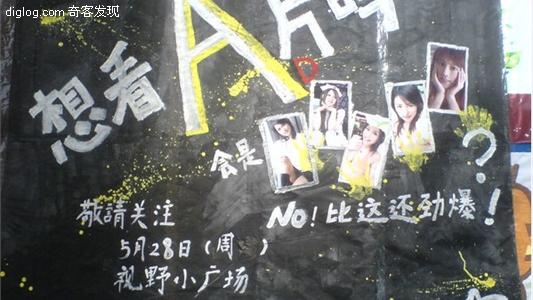 diglog.com 奇客发现
想看A片吗
D
会是
?
NO!比这还劲爆!
敬請关注
5月28日(周
视野小广场